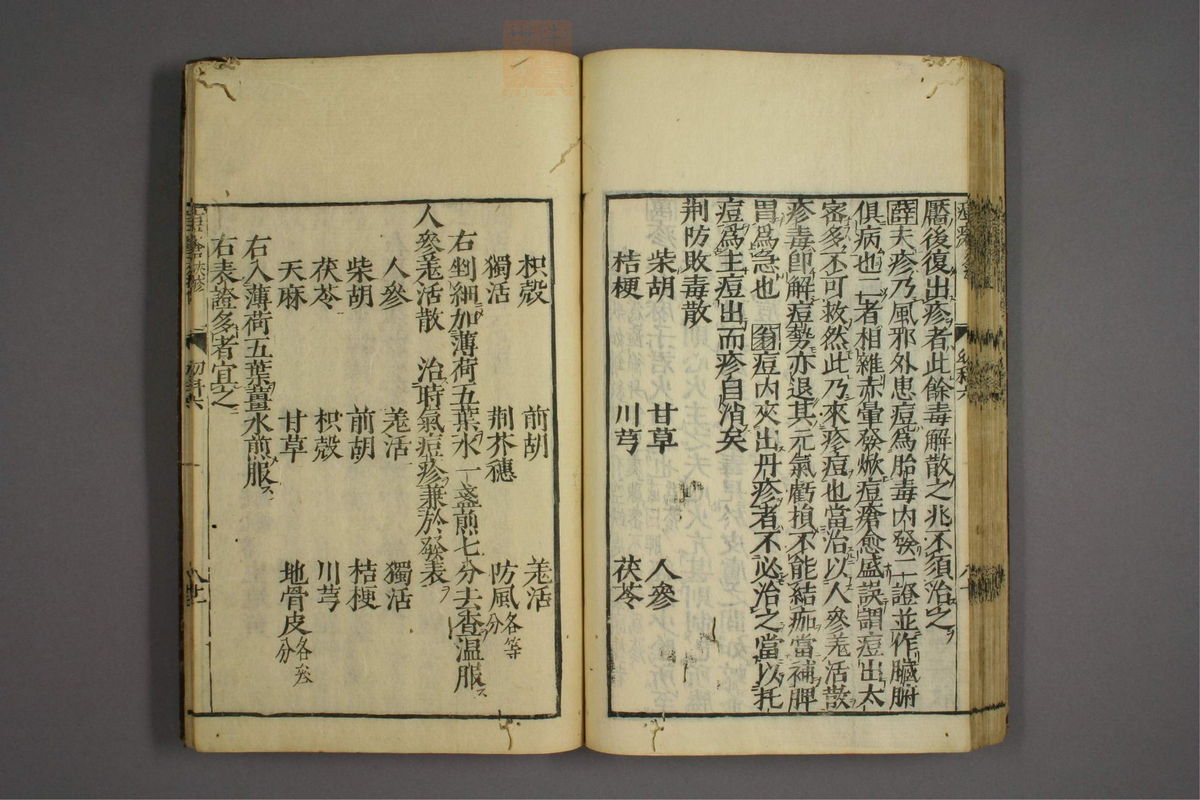 靨後復出疹者此餘毒解散之兆不須治之
薛夫疹乃風邪外患痘爲胎毒内發二證並作臟腑
俱病也二者相雜赤暈發焮痘瘡愈盛誤謂痘出太
密多不可救然此乃來疹痘也當治以人參羌活散
疹毒卽解痘勢亦退其元氣虧損不能結痂當補脾
胃爲急也 翁痘内夾出丹疹者不必治之當以托
痘爲主痘出而疹自消矣
荆防敗毒散
柴胡 甘草 人參
桔梗 川芎 茯苓
枳殼 前胡 羌活
獨活 荆芥穗 防風各等分
右剉細加薄荷五葉水一盞煎七分去渣溫服
人參羌活散 治時氣痘疹兼於發表
人參 羌活 獨活
柴胡 前胡 桔梗
茯苓 枳殼 川芎
天麻 甘草 地骨皮各分
右入薄荷五葉薑水煎服
右表證多者宜之